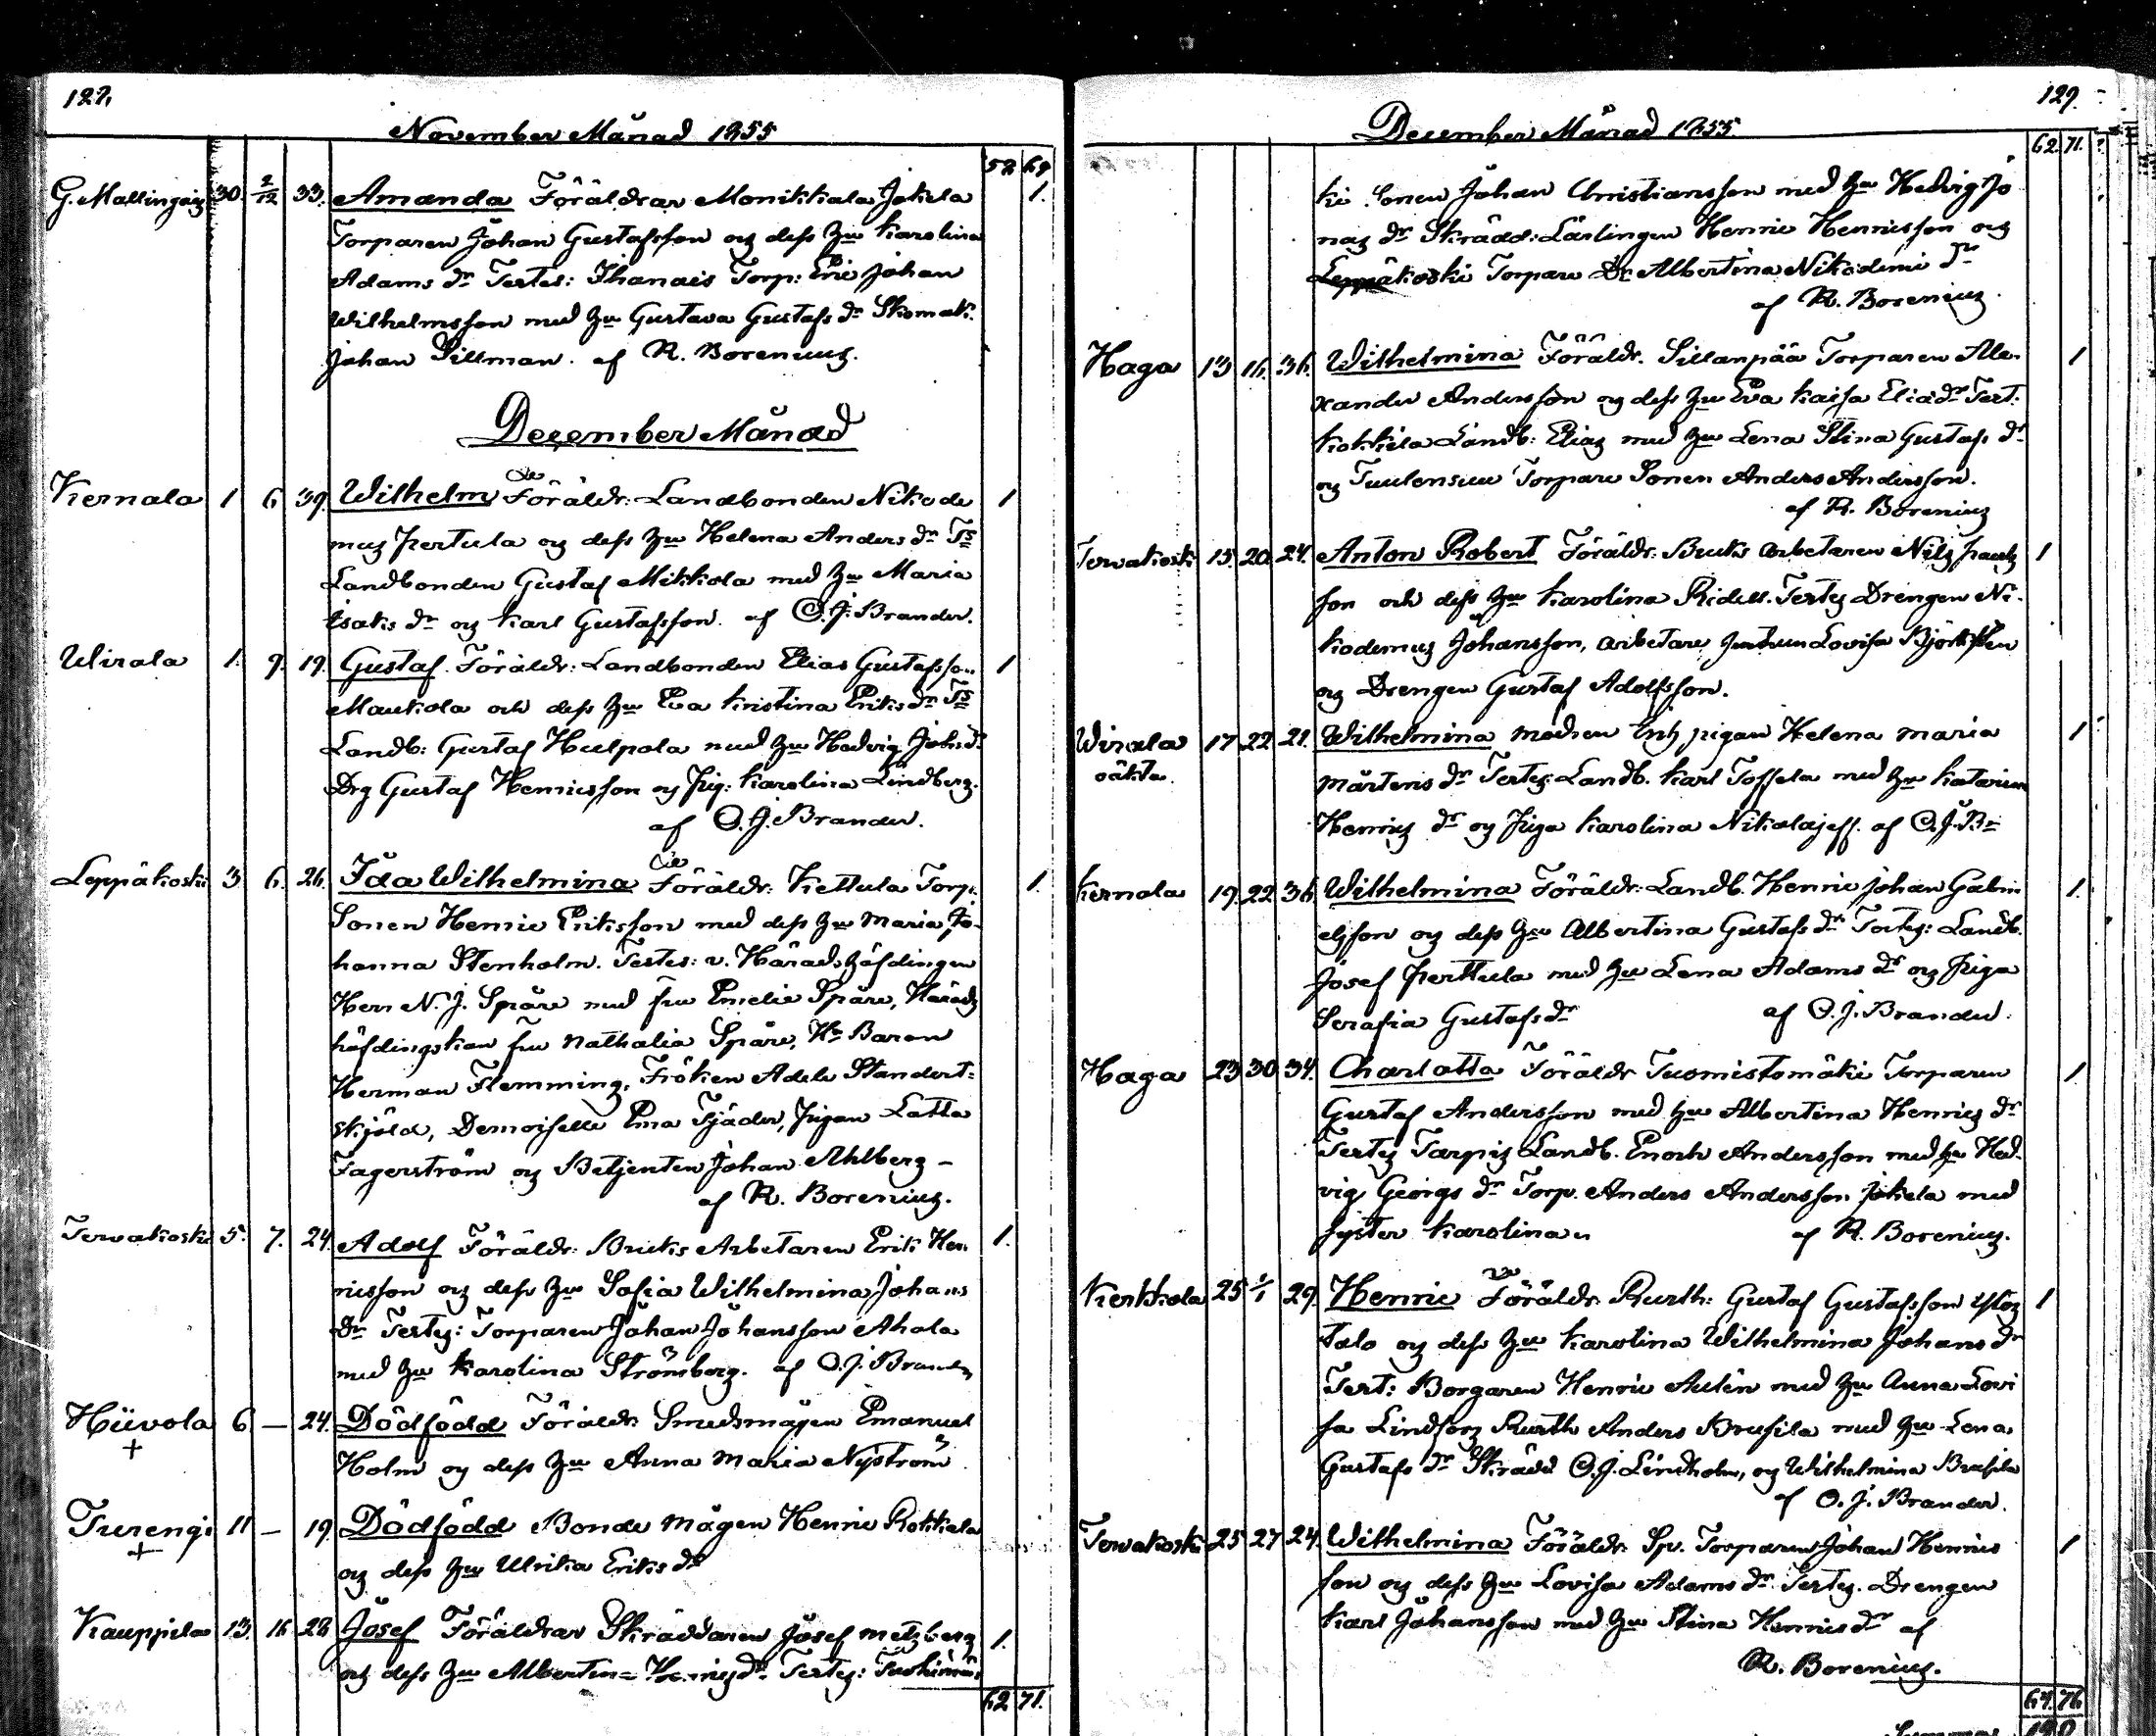 128.
November Månad 1855
58 69
G. Mallinpäis 30. 2/12 33. Amanda Föräldrar Monikkala Jokela 1.
Torparen Johan Gustafsson og dess hu Karolina
Adams dr Testes: Ihanais Torp: Eric Johan
Wilhelmsson med hu Gustava Gustafs dr Skomak.
Johan Sillman. af R. Borenius.
December Månad
Kernala 1 6 39. Wilhelm Föräldr: Landbonden Nikode 1
mus Perttula og dess hu Helena Anders dr Ts
Landbonden Gustaf Mikkola med hu Maria
Isaks dr og Karl Gustafsson. af O. J. Brander.
Wirala 1. 9. 19. Gustaf. Föräldr: Landbonden Elias Gustafsson 1
Maukola och dess hu Eva Kristina Eriks dr Ts
Landb: Gustaf Hulpola med hu Hedvig Johs dr
Drg Gustaf Henricsson og Pig: Karolina Lindberg.
af O. J. Brander.
Leppäkoski 3 6. 26. Ida Wilhelmina Föräldr: Kettula Torp. 1.
Sonen Henric Eriksson med dess hu Maria Jo-
hanna Stenholm. Testes: v. Häradshöfdingen
Herr N. J. Spåre med fru Emelie Spåre, Härads
höfdingskan fru Nathalia Spåre, Hr Baron
Herman Flemming, Fröken Adele Standert=
skjöld, Demoiselle Ema Tjäder, Pigan Lotta
Fagerström og Betjenten Johan Ahlberg –
af R. Borenius.
Terwakoski 5. 7. 24. Adolf Föräldr: Bruks Arbetaren Erik Hen 1.
ricsson og dess hu Sofia Wilhelmina Johans
dr Testes: Torparen Johan Johansson Ahola
med hu Karolina Strömberg. af O. J. Brander
Hiivola 6 — 24. Dödfödd Föräldr: Smedsmågen Emanuel
+ Holm og dess hu Anna Maria Nyström
Turengi 11 — 19. Dödfödd Bonde mågen Henric Rokkala
+ og dess hu Ulrika Eriks dr
Kauppila 13. 16 28 Josef Föräldrar Skräddaren Josef Metzberg 1.
og dess hu Albertin= Henrics dr. Testes:
62 71.
129.
December Månad 1855.
62. 71.
ki Sonen Johan Christiansson med hu Hedvig Jo
nas dr Skrädd: Lärlingen Henric Henricsson og
Leppäkoski Torpare Dr Albertina Nikodemi dr
af R. Borenius.
Haga 13 16. 36. Wilhelmina Föräldr. Sillanpää Torparen Alle- 1
xander Andersson og dess hu Eva Kaisa Elias dr Test:
Kokkila Landb: Elias med hu Lena Stina Gustafs dr
og Tuulensuu Torpare Sonen Anders Andersson.
af R. Borenius
Terwakoski 15. 20. 24. Anton Robert Föräldr. Bruks arbetaren Nils Pauls 1
son och dess hu Karolina Ridell. Testes Drengen Ni-
kodemus Johansson, arbetare hustrun Lovisa Björksten
og Drengen Gustaf Adolfsson.
Wirala 17 22 21. Wilhelmina modren Inh. pigan Helena Maria 1
oäkta. Mårtens dr Testes: Landb. Karl Toffela med hu Katarina
Henrics dr og Piga Karolina Nikolajeff. af O. J. Br
Kernala 19. 22. 36 Wilhelmina Föräldr: Landb. Henric Johan Gabri 1.
elsson og dess hu Albertina Gustafs dr Testes: Landb.
Josef Perttula med hu Lena Adams dr og Piga
Serafia Gustafs dr af O. J. Brander.
Haga 23 30 34. Charlotta Föräldr Tuomistomäki Torparen 1.
Gustaf Andersson med hu Albertina Henrics dr
Testes Tarpis Landb. Enoch Andersson med hu Hed-
vig Georgs dr Torp. Anders Andersson Jokela med
syster Karolina af R. Borenius.
Kerkkola 25 1/1 29. Henric Föräldr: Rusth: Gustaf Gustafsson Ylös 1
talo og dess hu Karolina Wilhelmina Johans dr
Test: Borgaren Henric Aulin med hu Anna Lovi
sa Lindfors Rusth Anders Brusila med hu Lena
Gustafs dr Skrädd O. J. Lindholm, og Wilhelmina Brusila
af O. J. Brander.
Terwakoski 25 27 24. Wilhelmina Föräldr: Sp. Torparen Johan Henrics 1
son og dess hu Lovisa Adams dr. Testes. Drengen
Karl Johansson med hu Stina Henrics dr af
R. Borenius.
64. 76